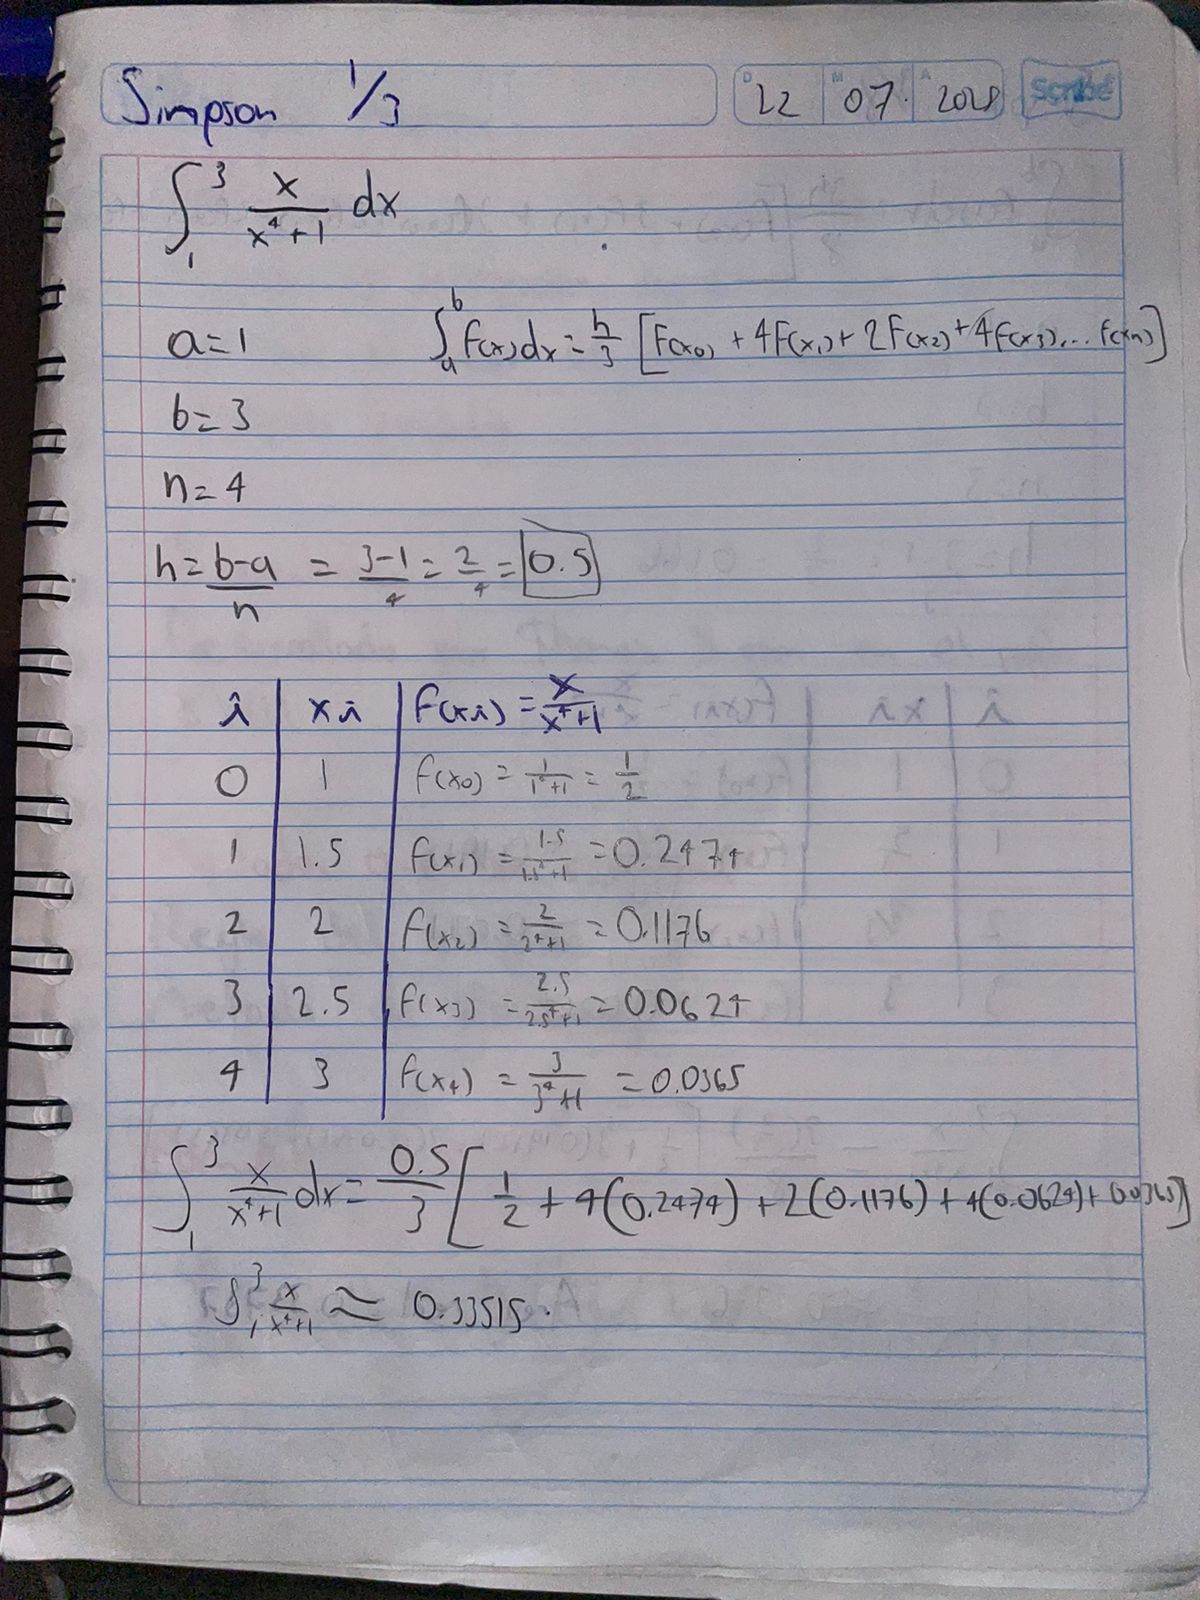 Simpson 1/3
D 22 M 07. A 2028 Scribe
∫₁³ x/(x⁴+1) dx
a=1 ∫ₐᵇ F(x)dx = h/3 [F(x₀) + 4F(x₁) + 2F(x₂) + 4F(x₃)... f(xn)]
b=3
n=4
h = (b-a)/n = (3-1)/4 = 2/4 = 0.5
i | xi | f(xi) = x/(x⁴+1)
0 | 1 | f(x₀) = 1/(1⁴+1) = 1/2
1 | 1.5 | f(x₁) = 1.5/(1.5⁴+1) = 0.2474
2 | 2 | f(x₂) = 2/(2⁴+1) = 0.1176
3 | 2.5 | f(x₃) = 2.5/(2.5⁴+1) = 0.0624
4 | 3 | f(x₄) = 3/(3⁴+1) = 0.0365
∫₁³ x/(x⁴+1) dx = 0.5/3 [1/2 + 4(0.2474) + 2(0.1176) + 4(0.0624) + (0.0365)]
∫₁³ x/(x⁴+1) ≈ 0.33515.